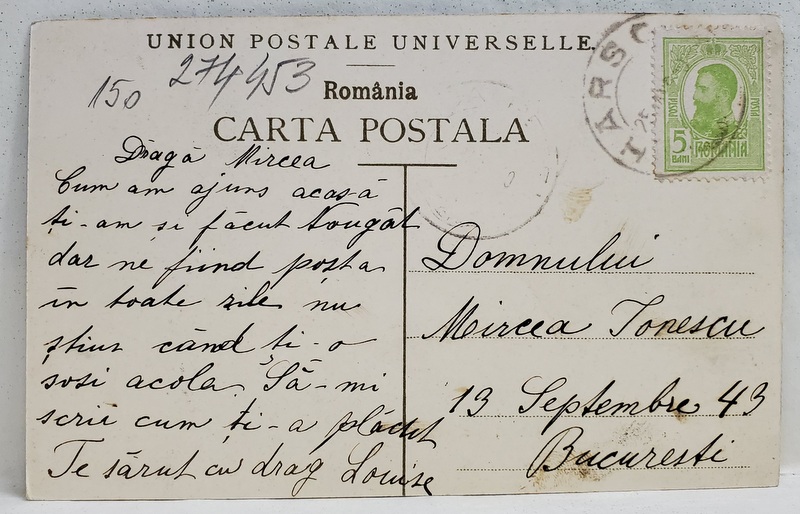 UNION POSTALE UNIVERSELLE.
150 274453
România
CARTA POSTALA
Dragă Mircea
Cum am ajuns acasă
ți-am si făcut Nougăt
dar ne fiind poșta
în toate zile nu
știur când ți-o
sosi acola. Să-mi
scrii cum ți-a plăcut
Te sărut cu drag Louise
Domnului
Mircea Ionescu
13 Septembre 43
Bucuresti
HARSO
POSTA
5
BANI
ROMANIA